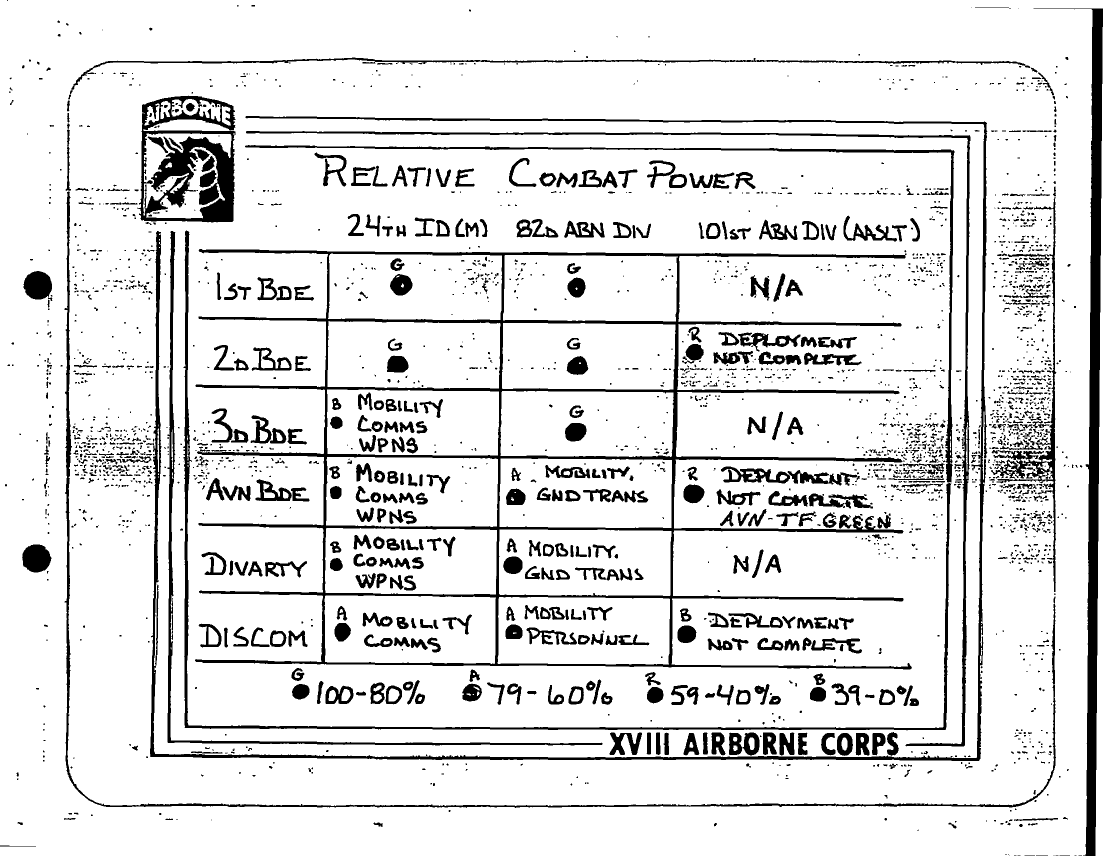 AIRBORNE
RELATIVE COMBAT POWER
24TH ID (M) 82D ABN DIV 101ST ABN DIV (AASLT)
1ST BDE G G N/A
2D BDE G G R DEPLOYMENT
NOT COMPLETE
3D BDE B MOBILITY
COMMS
WPNS G N/A
AVN BDE B MOBILITY
COMMS
WPNS A MOBILITY.
GND TRANS R DEPLOYMENT
NOT COMPLETE
AVN-TF GREEN
DIVARTY B MOBILITY
COMMS
WPNS A MOBILITY.
GND TRANS N/A
DISCOM A MOBILITY
COMMS A MOBILITY
PERSONNEL B DEPLOYMENT
NOT COMPLETE
G 100-80% A 79-60% R 59-40% B 39-0%
XVIII AIRBORNE CORPS